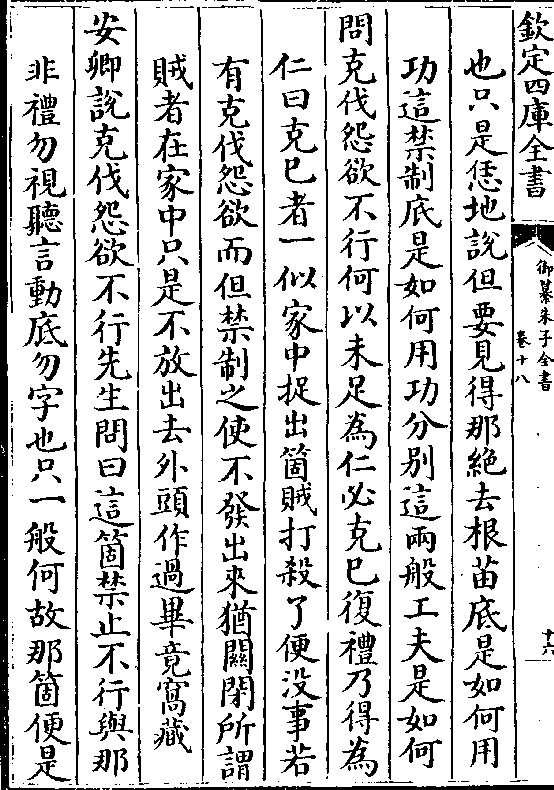 欽定四庫全書
御纂朱子全書
卷十八
十六
也只是恁地說但要見得那絶去根苗底是如何用
功這禁制底是如何用功分别這兩般工夫是如何
問克伐怨欲不行何以未足為仁必克已復禮乃得為
仁曰克已者一似家中捉出箇賊打殺了便没事若
有克伐怨欲而但禁制之使不發出來猶關閉所謂
賊者在家中只是不放出去外頭作過畢竟窩藏
安卿說克伐怨欲不行先生問曰這箇禁止不行與那
非禮勿視聽言動底勿字也只一般何故那箇便是